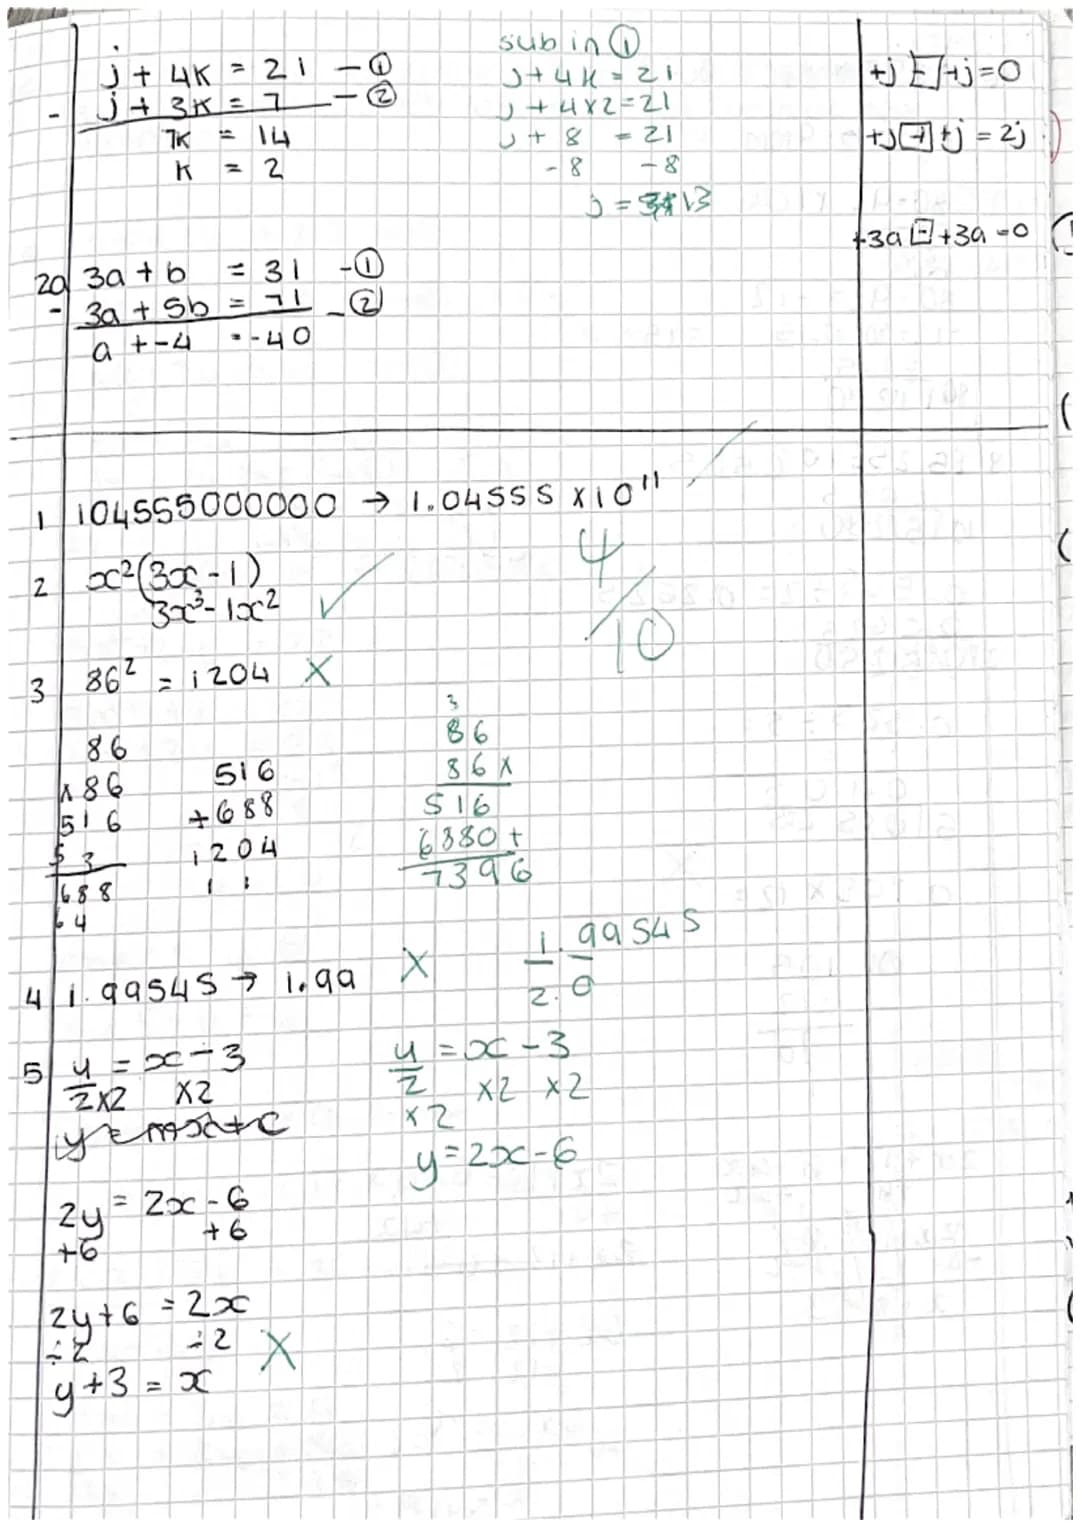 j + 4k = 21 - ①
- j + 3k = 7 - ②
7k = 14
k = 2
sub in ①
j + 4k = 21
j + 4x2 = 21
j + 8 = 21
- 8 - 8
j = 13
+j - +j = 0
+j + +j = 2j
+3a - +3a = 0
2a) 3a + b = 31 - ①
- 3a + 5b = 71 - ②
a + -4 = -40
1 104555000000 → 1.04555 x 10¹¹
4/10
2 x²(3x - 1)
3x³ - 1x² ✓
3 86² = 1204 X
86
x 86
516
3
688
64
516
+ 688
1204
1 1
3
86
86 x
516
6880 +
7396
4 1.99545 → 1.99 X
1.99545
2.0
5 y/2 = x - 3
x2 x2
y = mx + c
2y = 2x - 6
+6 +6
2y + 6 = 2x
÷2 ÷2 X
y + 3 = x
y/2 = x - 3
x2 x2 x2
y = 2x - 6